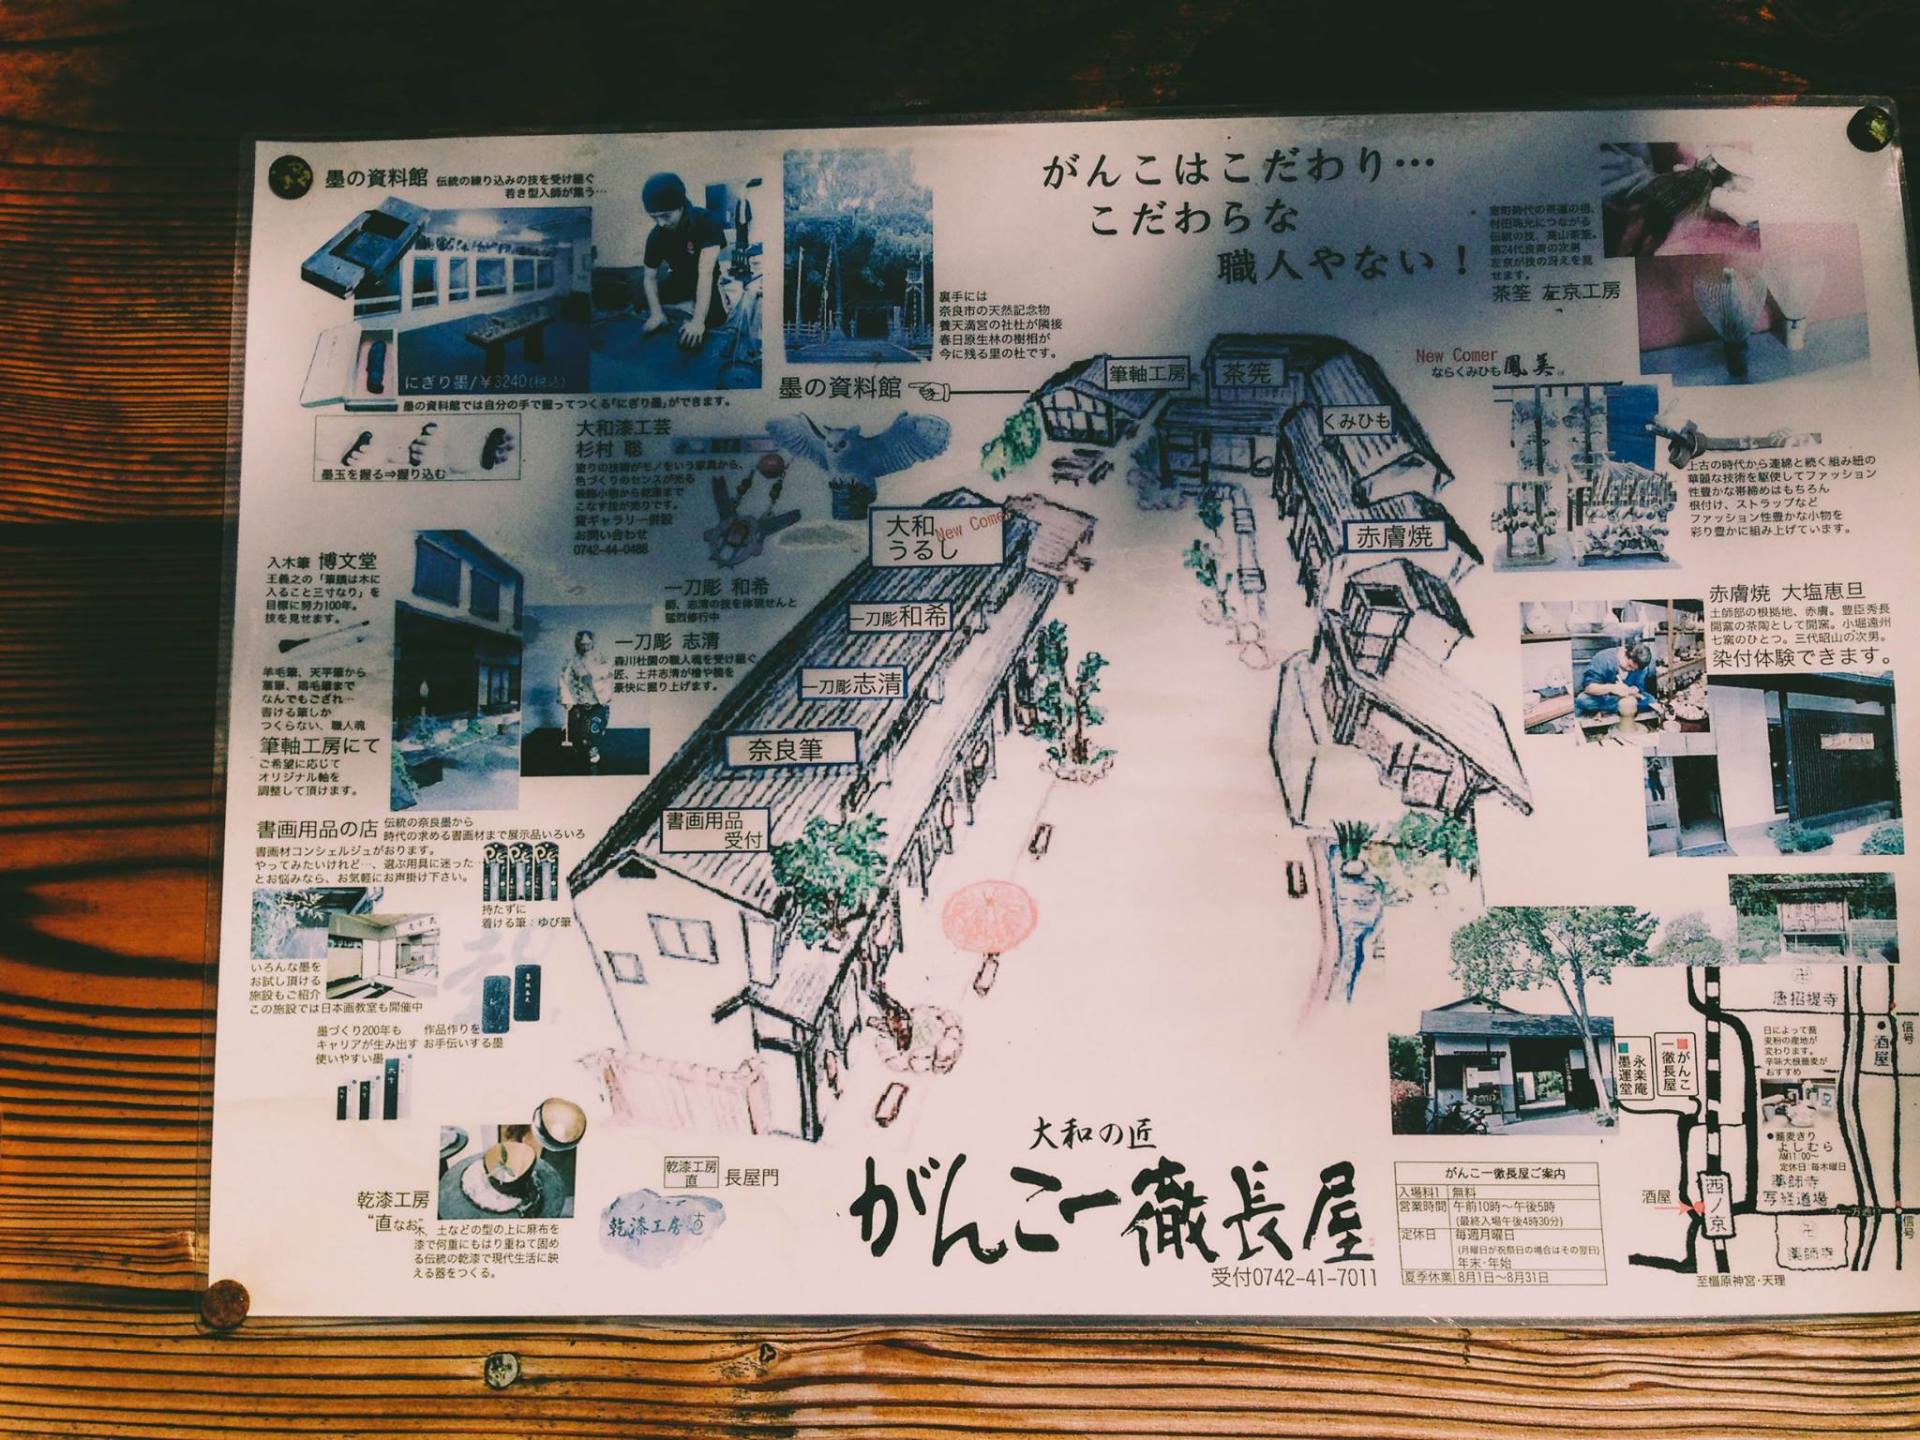 墨の資料館
伝統の練り込みの技を受け継ぐ
若き型入師が集う…
にぎり墨/￥3240(税込)
墨の資料館では自分の手で握ってつくる「にぎり墨」ができます。
墨玉を握る⇒握り込む
裏手には
奈良市の天然記念物
養天満宮の社杜が隣接
春日原生林の樹相が
今に残る里の杜です。
墨の資料館
がんこはこだわり…
こだわらな
職人やない！
室町時代の茶道の祖、
村田珠光につながる
伝統の技、高山茶筌。
第24代良斎の次男
左京が技の冴えを見
せます。
茶筌 左京工房
New Comer
ならくみひも 鳳美
上古の時代から連綿と続く組み紐の
華麗な技術を駆使してファッション
性豊かな帯締めはもちろん
根付け、ストラップなど
ファッション性豊かな小物を
彩り豊かに組み上げています。
大和漆工芸
杉村 聡
塗りの技術がモノをいう家具から、
色づくりのセンスが光る
装飾小物から乾漆まで
こなす技が売りです。
貸ギャラリー併設
お問い合わせ
0742-44-0486
入木筆 博文堂
王羲之の「筆蹟は木に
入ること三寸なり」を
目標に努力100年。
技を見せます。
羊毛筆、天平筆から
なんでもござれ…
書ける筆しか
つくらない、職人魂
筆軸工房にて
ご希望に応じて
オリジナル軸を
調整して頂けます。
一刀彫 和希
師、志清の技を体現せんと
猛烈修行中
一刀彫 志清
森川杜園の職人魂を受け継ぐ
匠、土井志清が檜や楠を
豪快に掘り上げます。
筆軸工房
茶筅
くみひも
赤膚焼
大和
うるし
New Comer
一刀彫和希
一刀彫志清
奈良筆
書画用品
受付
赤膚焼 大塩恵旦
土師部の根拠地、赤膚。豊臣秀長
開窯の茶陶として開窯。小堀遠州
七窯のひとつ。三代昭山の次男。
染付体験できます。
書画用品の店
伝統の奈良墨から
時代の求める書画材まで展示品いろいろ
書画材コンシェルジュがおります。
やってみたいけれど…、選ぶ用具に迷った
とお悩みなら、お気軽にお声掛け下さい。
持たずに
着ける筆：ゆび筆
いろんな墨を
お試し頂ける
施設もご紹介
この施設では日本画教室も開催中
墨づくり200年も
キャリアが生み出す
使いやすい墨
作品作りを
お手伝いする墨
乾漆工房
“直なお”
木、土などの型の上に麻布を
漆で何重にもはり重ねて固め
る伝統の乾漆で現代生活に映
える器をつくる。
乾漆工房
直
長屋門
乾漆工房 直
大和の匠
がんこ一徹長屋
受付0742-41-7011
がんこ一徹長屋ご案内
入場料 無料
営業時間 午前10時～午後5時
(最終入場午後4時30分)
定休日 毎週月曜日
(月曜日が祝祭日の場合はその翌日)
年末・年始
夏季休業 8月1日～8月31日
墨運堂
永楽庵
がんこ
一徹長屋
唐招提寺
信号
酒屋
日によって蕎
麦粉の産地が
変わります。
辛味大根蕎麦が
おすすめ
●蕎麦きり
よしむら
AM11:00～
定休日:毎木曜日
薬師寺
写経道場
薬師寺
酒屋
西ノ京
信号
至橿原神宮・天理